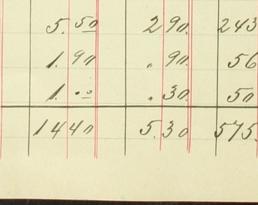 5.50 290. 243
1.90 „ 90. 56
1.00 . 30. 50
1440 5.30 575.